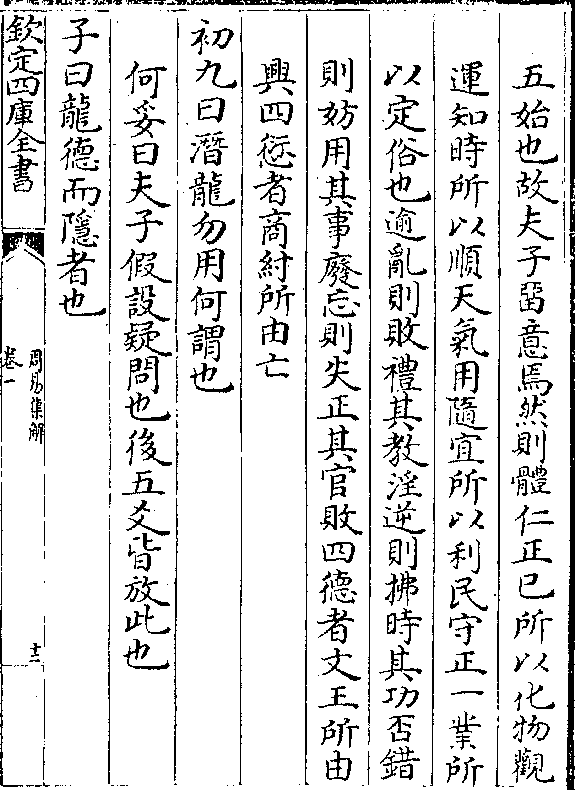 五始也故夫子畱意焉然則體仁正已所以化物觀
運知時所以順天氣用隨宜所以利民守正一業所
以定俗也逾亂則敗禮其教淫逆則拂時其功否錯
則妨用其事廢忘則失正其官敗四德者文王所由
興四愆者商紂所由亡
初九曰潛龍勿用何謂也
何妥曰夫子假設疑問也後五爻皆放此也
子曰龍德而隱者也
欽定四庫全書
周易集解
卷一
十二